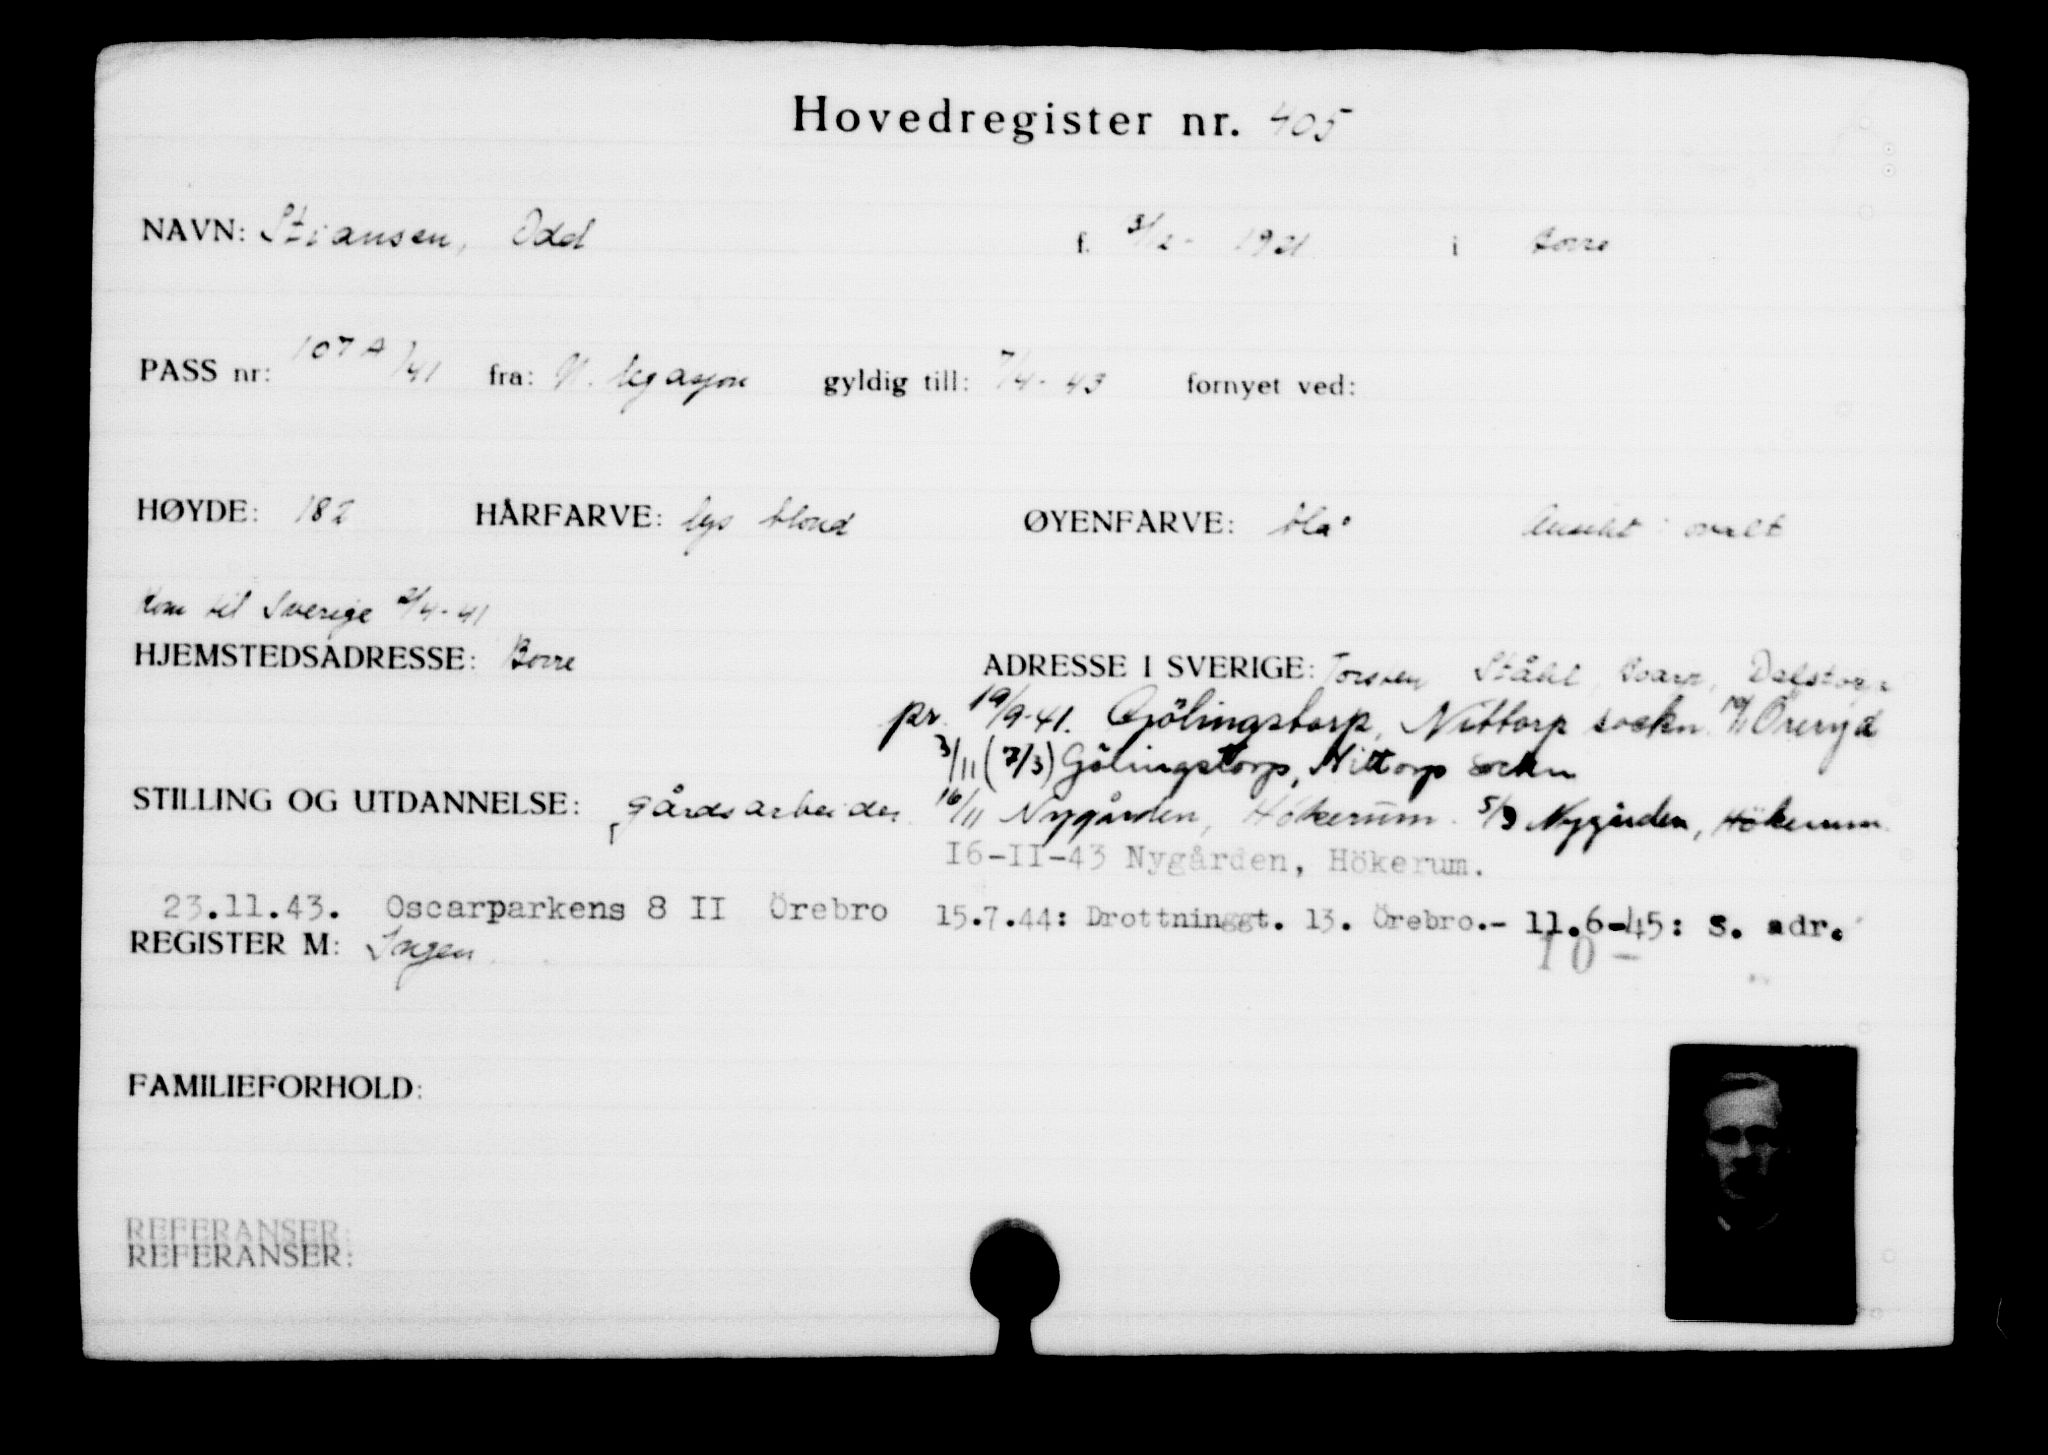 Hovedregister nr. 405
NAVN: Stiansen, Odd f. 3/2- 1921 i Borre
PASS nr: 107 A/41 fra: N. legasjon gyldig till: 7/4-43 fornyet ved:
HØYDE: 182 HÅRFARVE: lys blond ØYENFARVE: blå Ansikt: ovalt
Kom til Sverige 2/4-41
HJEMSTEDSADRESSE: Borre ADRESSE I SVERIGE: Torsten Ståhl, Dalstorp
pr. 19/9-41. Gölingstorp, Nittorp sockn. Öreryd
3/11 (7/3) Gölingstorp, Nittorp sockn
STILLING OG UTDANNELSE: gårdsarbeider 16/11 Nygården, Hökerum. 5/9 Nygården, Hökerum.
I6-II-43 Nygården, Hökerum.
23.11.43. Oscarparkens 8 II Örebro 15.7.44: Drottninggt. 13. Örebro.- 11.6-45: S. adr.
10 -
REGISTER M: Ingen.
FAMILIEFORHOLD:
REFERANSER:
REFERANSER: